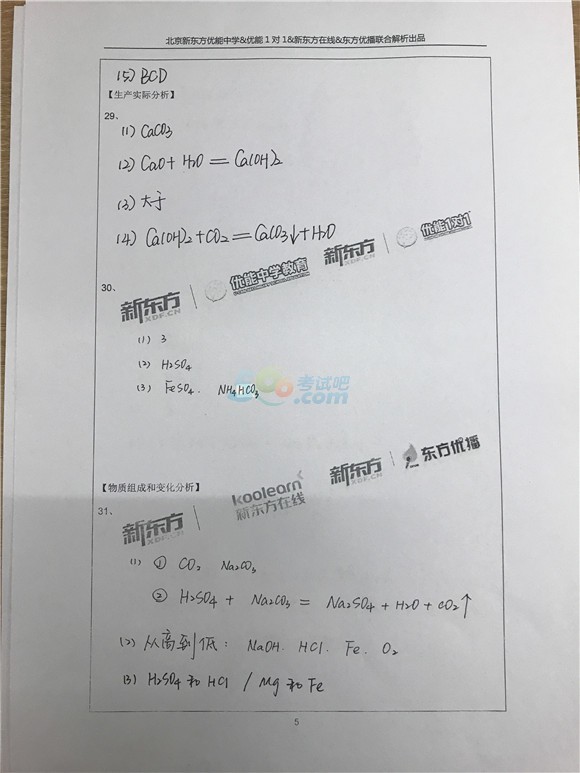 北京新东方优能中学&优能1对1&新东方在线&东方优播联合解析出品
(5) BCD
【生产实际分析】
29、
(1) CaCO3
(2) CaO + H2O = Ca(OH)2
(3) 大于
(4) Ca(OH)2 + CO2 = CaCO3↓ + H2O
新东方 XDF.CN 优能中学教育 新东方 XDF.CN 优能1对1
30、
(1) 3
(2) H2SO4
(3) FeSO4. NH4HCO3
566考试吧 .com
【物质组成和变化分析】
新东方 XDF.CN koolearn 新东方在线 新东方 XDF.CN 东方优播
31、
(1) ① CO2 Na2CO3
② H2SO4 + Na2CO3 = Na2SO4 + H2O + CO2↑
(2) 从高到低: NaOH. HCl. Fe. O2
(3) H2SO4和HCl / Mg和Fe
5